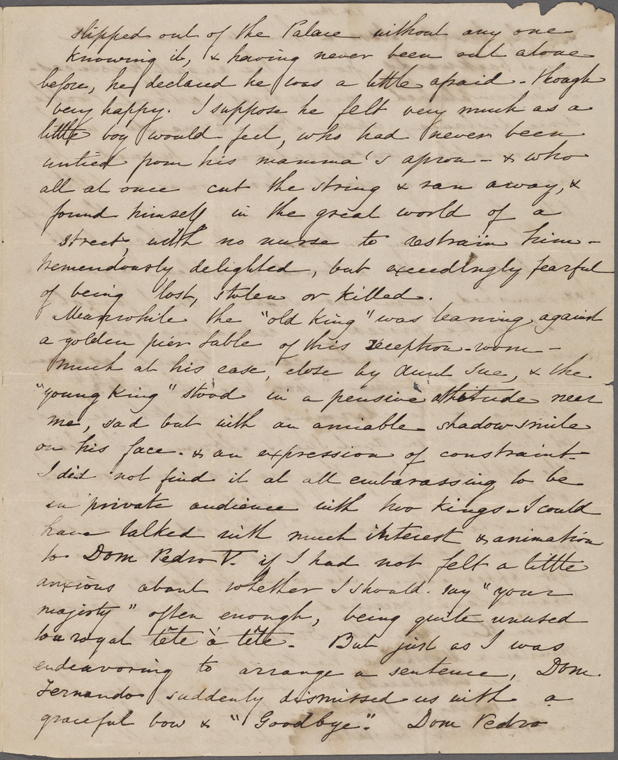 slipped out of the Palace without any one
knowing it, & having never been out alone
before, he declared he was a little afraid - though
very happy. I suppose he felt very much as a
little boy would feel, who had never been
untied from his mamma's apron - & who
all at once cut the string & ran away, &
found himself in the great world of a
street, with no nurse to restrain him -
tremendously delighted, but exceedingly fearful
of being lost, stolen or killed.
Meanwhile the "old King" was leaning against
a golden pier table of this reception-room -
much at his ease, close by Aunt Sue, & the
"young King" stood in a pensive attitude near
me, sad but with an amiable shadow-smile
on his face - & an expression of constraint -
I did not find it at all embarassing to be
in private audience with two Kings - I could
have talked with much interest & animation
to Dom Pedro V. if I had not felt a little
anxious about whether I should say "your
majesty" often enough, being quite unused
to a royal tête à tête. But just as I was
endeavoring to arrange a sentence, Dom
Fernando suddenly dismissed us with a
graceful bow & "Goodbye". Dom Pedro